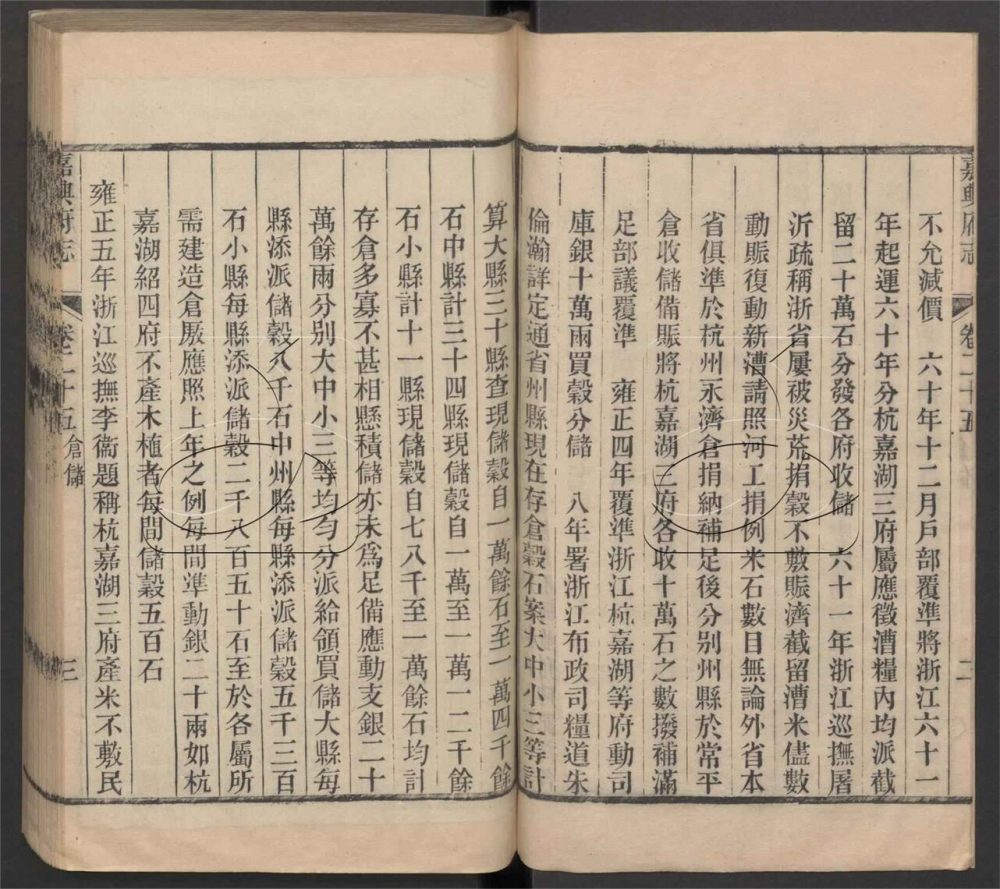 嘉興府志 卷二十五 二
不允減價 六十年十二月戶部覆準將浙江六十一
年起運六十年分杭嘉湖三府屬應徵漕糧內均派截
留二十萬石分發各府收儲 六十一年浙江巡撫屠
沂疏稱浙省屢被災荒捐穀不敷賑濟截留漕米儘數
動賑復動新漕請照河工捐例米石數目無論外省本
省俱準於杭州永濟倉捐納補足後分別州縣於常平
倉收儲備賑將杭嘉湖三府各收十萬石之數撥補滿
足部議覆準 雍正四年覆準浙江杭嘉湖等府動司
庫銀十萬兩買穀分儲 八年署浙江布政司糧道朱
倫瀚詳定通省州縣現在存倉穀石案大中小三等計
算大縣三十縣查現儲穀自一萬餘石至一萬四千餘
石中縣計三十四縣現儲穀自一萬至一萬一二千餘
石小縣計十一縣現儲穀自七八千至一萬餘石均計
存倉多寡不甚相懸積儲亦未爲足備應動支銀二十
萬餘兩分別大中小三等均勻分派給領買儲大縣每
縣添派儲穀八千石中州縣每縣添派儲穀五千三百
石小縣每縣添派儲穀二千八百五十石至於各屬所
需建造倉廒應照上年之例每間準動銀二十兩如杭
嘉湖紹四府不產木植者每間儲穀五百石
雍正五年浙江巡撫李衞題稱杭嘉湖三府產米不敷民
嘉興府志 卷二十五 倉儲 三